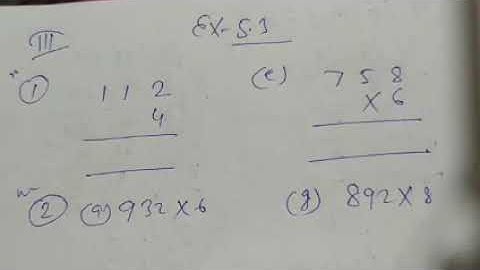 III
Ex-5.3
① 112 (e) 758
4 ×6
② (a) 932×6 (g) 892×8